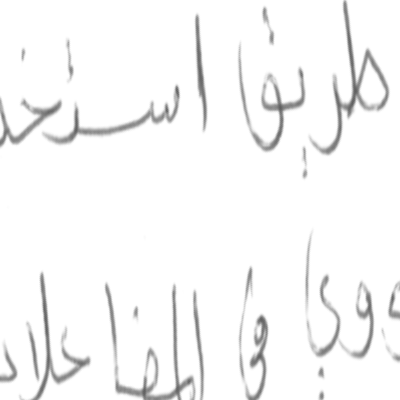 طريق استخد
ووي في المفاعلات